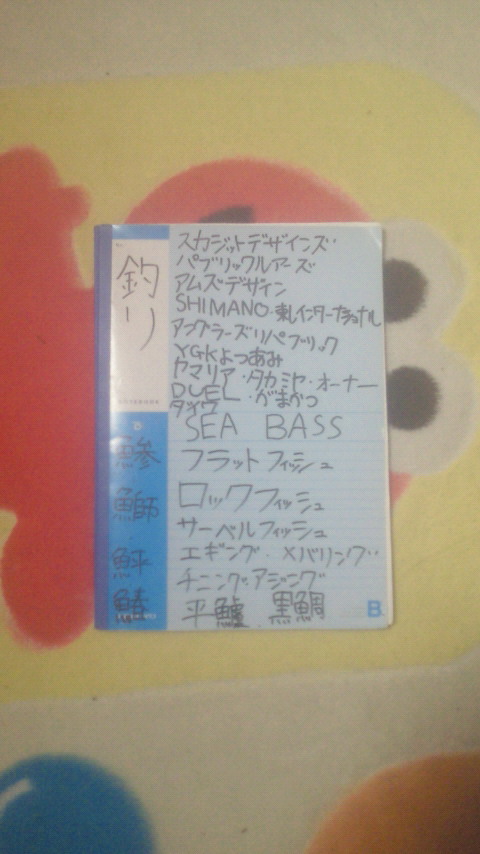 釣り
スカジットデザインズ
パブリックルアーズ
アムズデザイン
SHIMANO・東レインターナショナル
アングラーズリパブリック
YGKよつあみ
ヤマリア・タカミヤ・オーナー
DUEL・がまかつ
ダイワ
SEA BASS
フラットフィッシュ
ロックフィッシュ
サーベルフィッシュ
エギング・メバリング
チニングアジング
平鱸・黒鯛
鯵
鰤
鮃
B